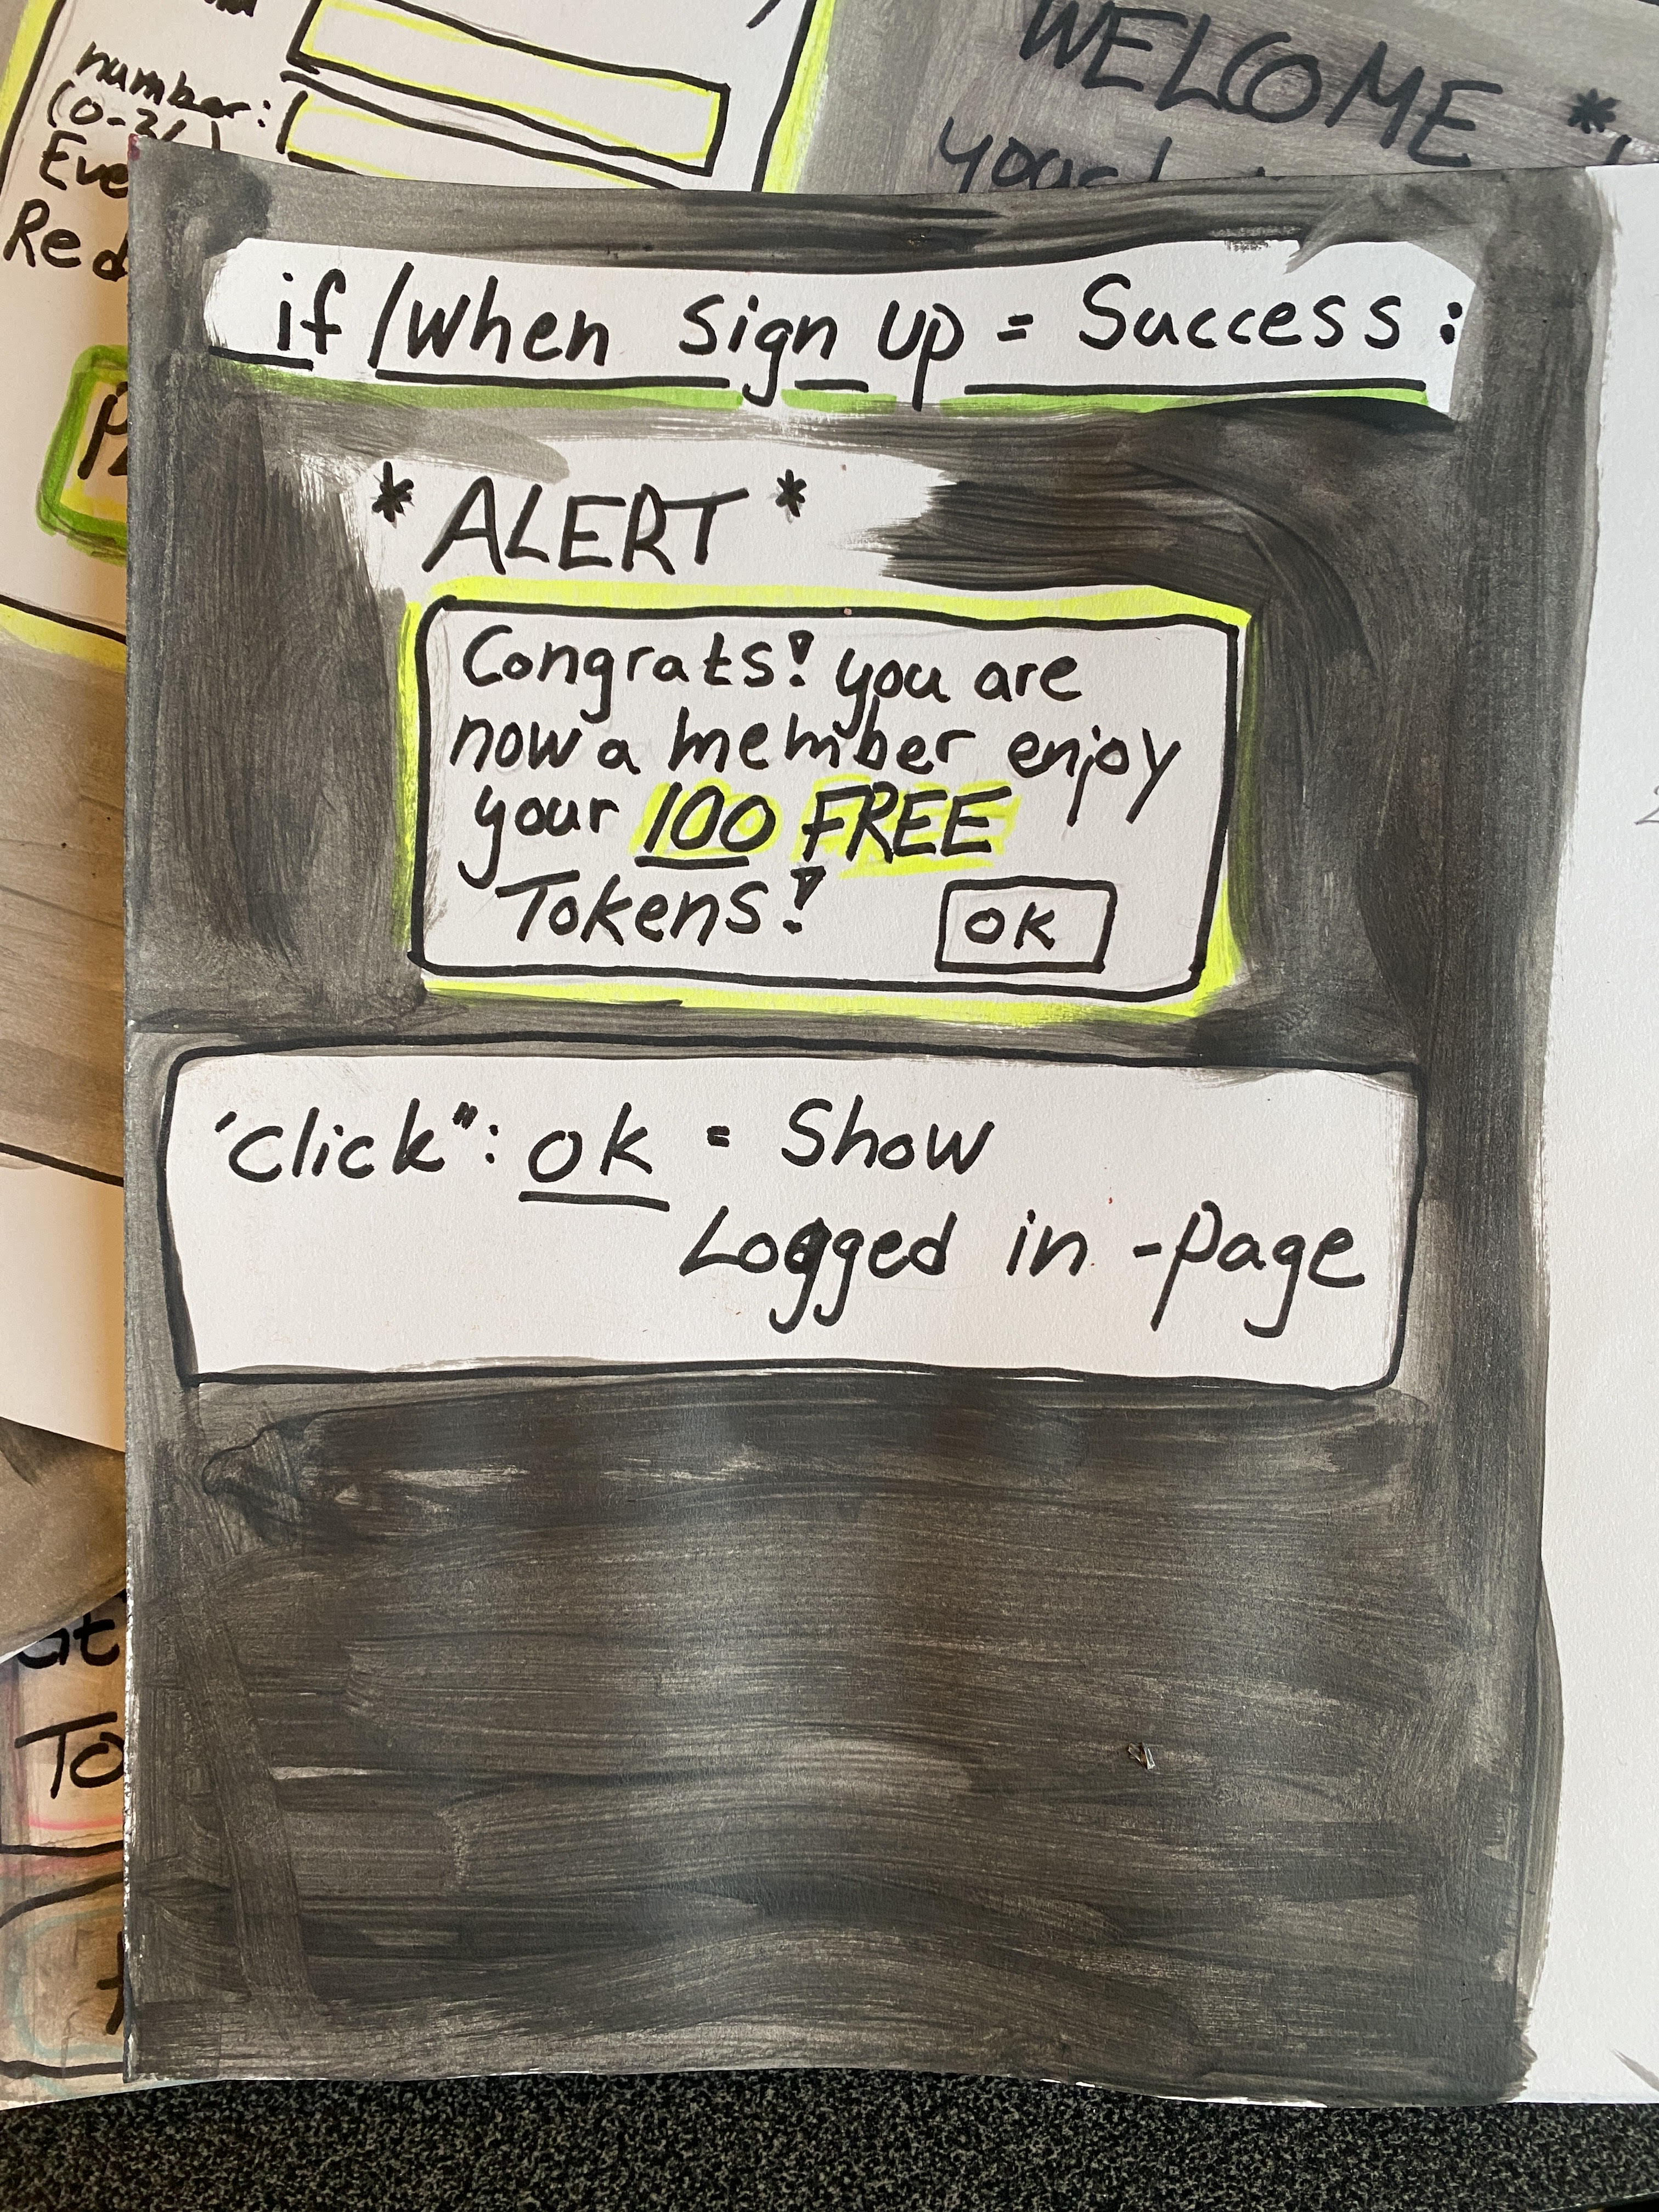 number:
Eve
Red
WELCOME *
if / When Sign up = Success :
* ALERT *
Congrats! you are
now a member enjoy
your 100 FREE
Tokens!
OK
'Click": Ok = Show
Logged in - page
To